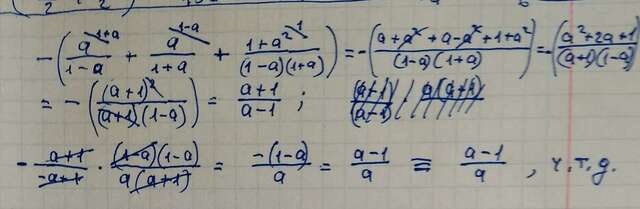 -(a^{1+a}/(1-a) + a^{1-a}/(1+a) + 1+a^{2 1}/((1-a)(1+a))) = -((a+a²+a-a²+1+a²)/((1-a)(1+a))) = -((a²+2a+1)/((a+1)(1-a)))
= -((a+1)²/((a+1)(1-a))) = (a+1)/(a-1) ;
- (a+1)/(-a+1) · ((1-a)(1-a))/(a(a+1)) = (-(1-a))/a = (a-1)/a ≡ (a-1)/a , ч.т.д.